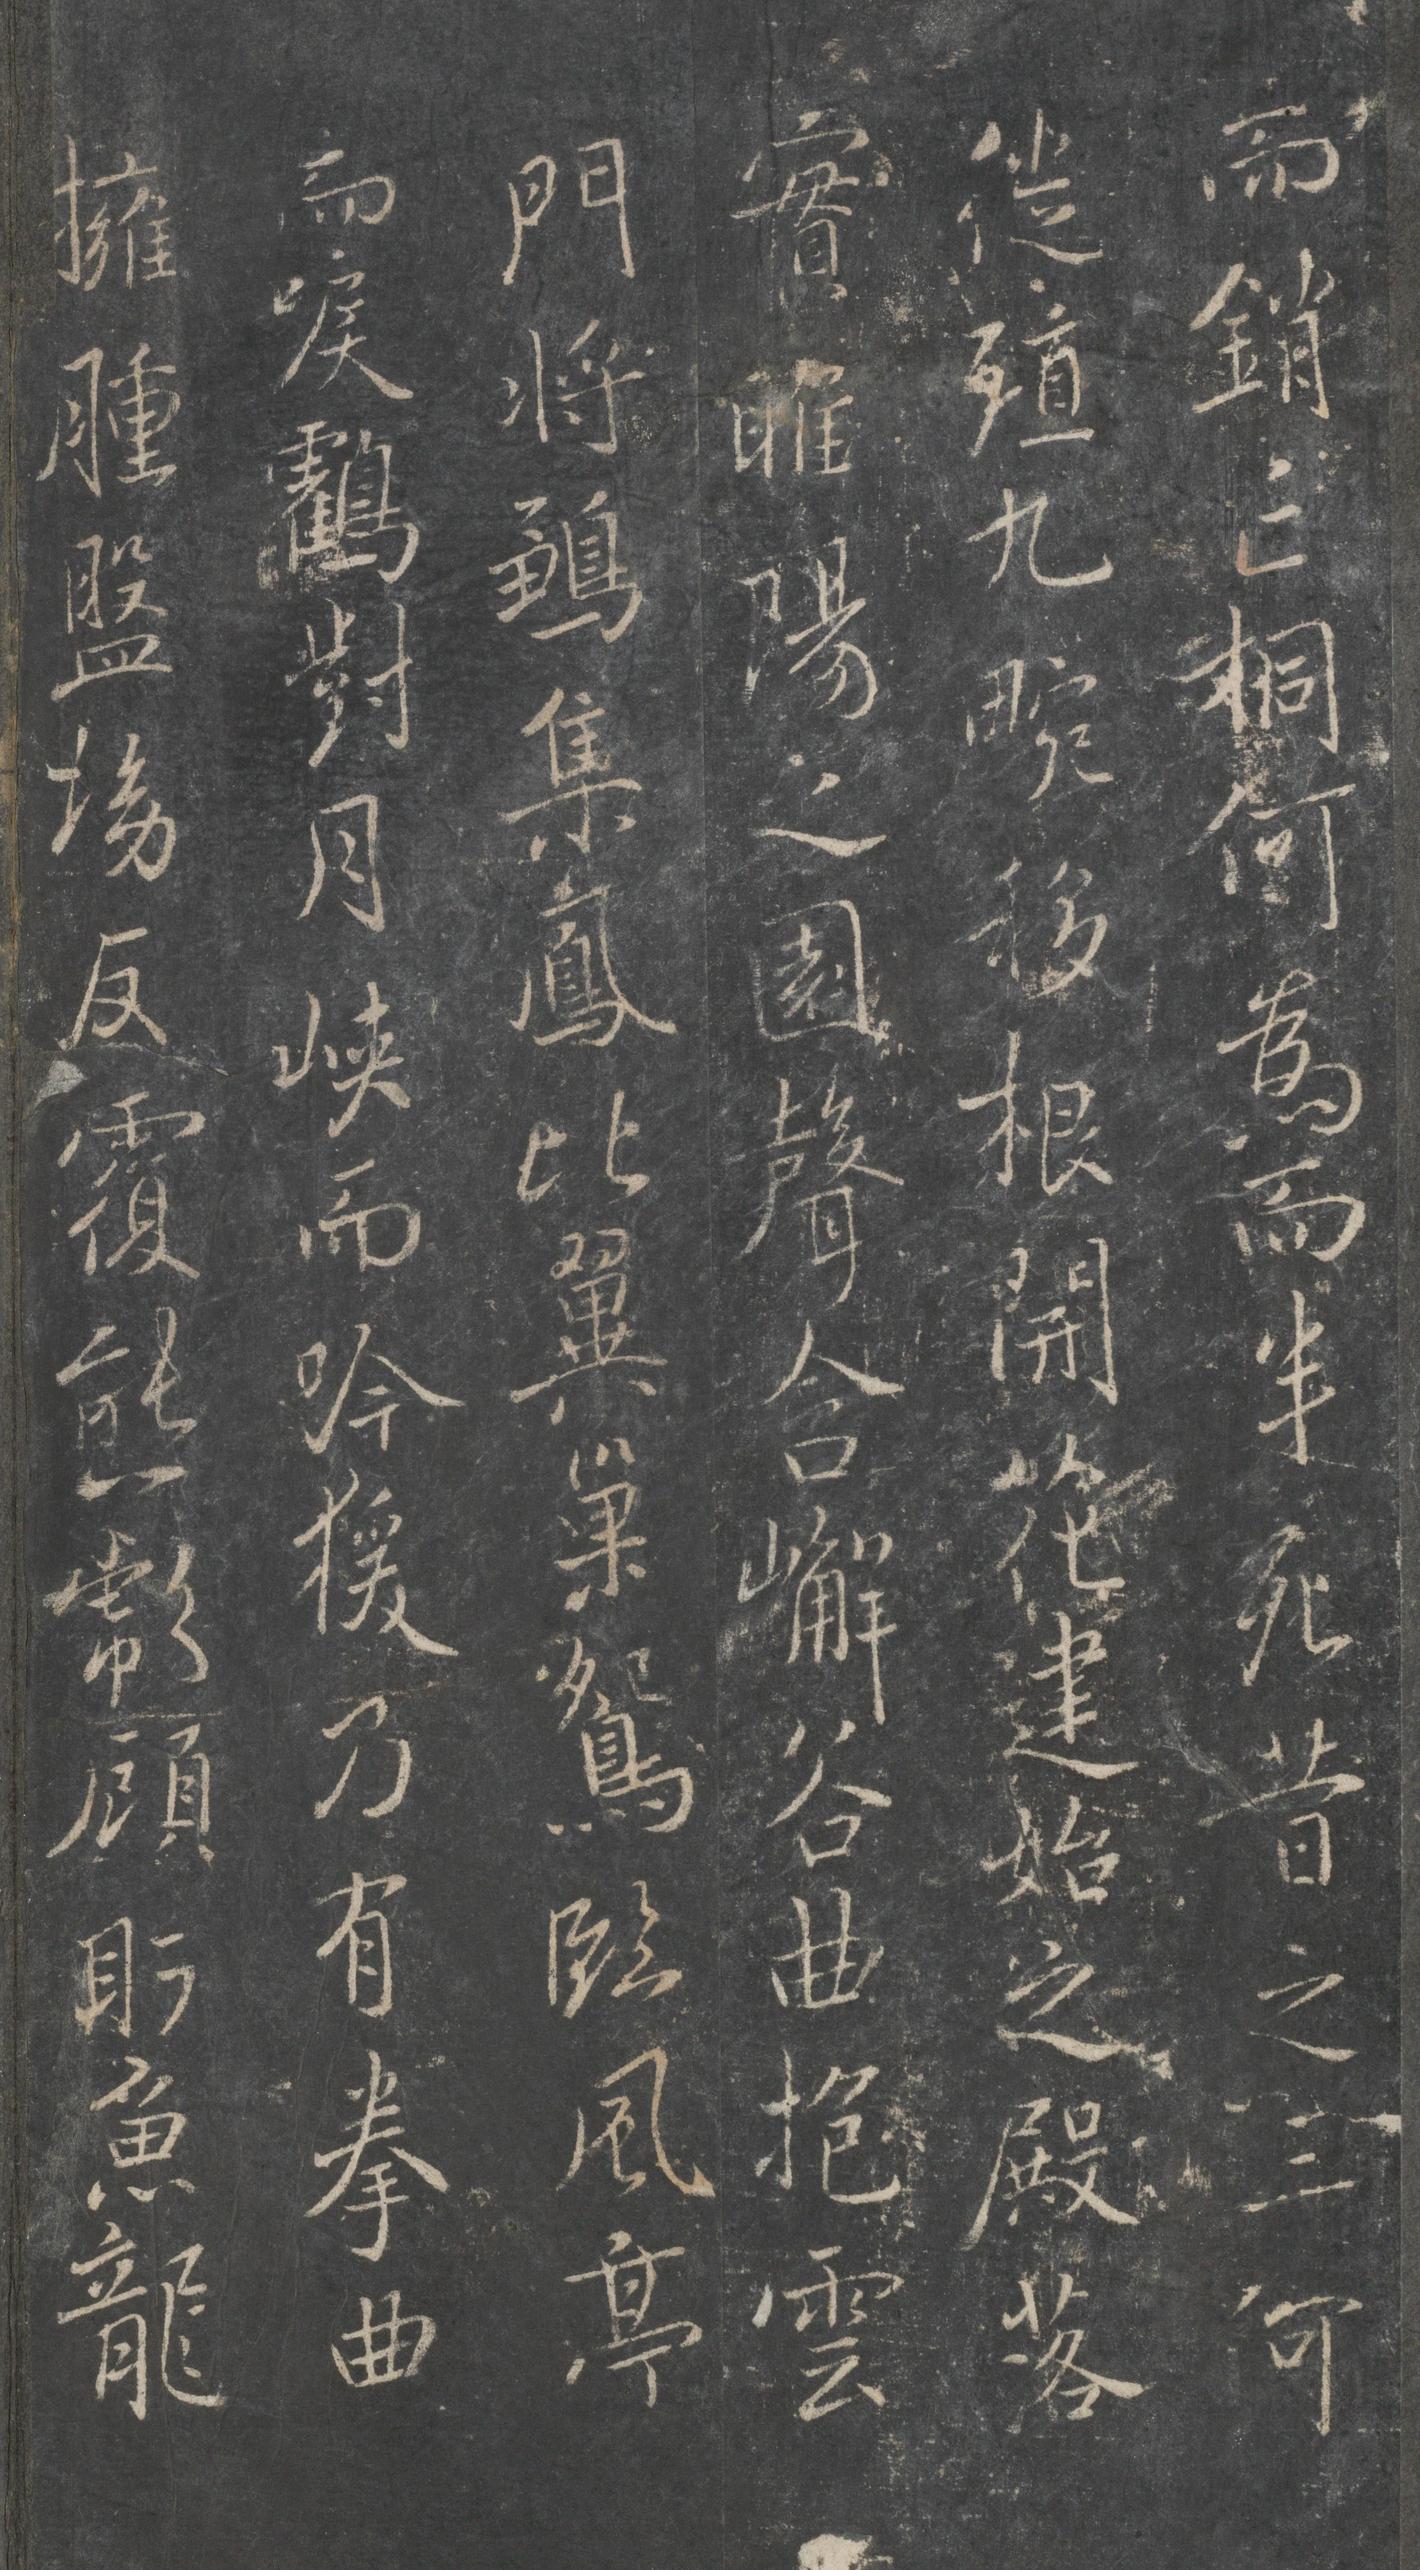 而銷亡桐何為而半死昔之三河
徙殖九畹移根開花建始之殿落
實睢陽之園聲含嶰谷曲抱雲
門將鶵集鳳比翼巢鴛臨風亭
而唳鶴對月峽而吟猨乃有拳曲
擁腫盤坳反覆熊彪顧盻魚龍